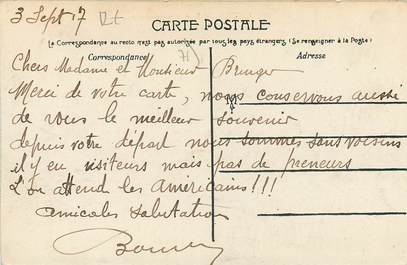 3 Sept 17
CARTE POSTALE
La Correspondance au recto n'est pas autorisée par tous les pays étrangers (Se renseigner à la Poste)
Correspondance
Adresse
Chers Madame et Monsieur
Merci de votre carte, nous conservons aussi
de vous le meilleur souvenir
depuis votre départ nous sommes sans voisins
il y en visiteurs mais pas de preneurs
L'on attend les Américains!!!
amicales salutation